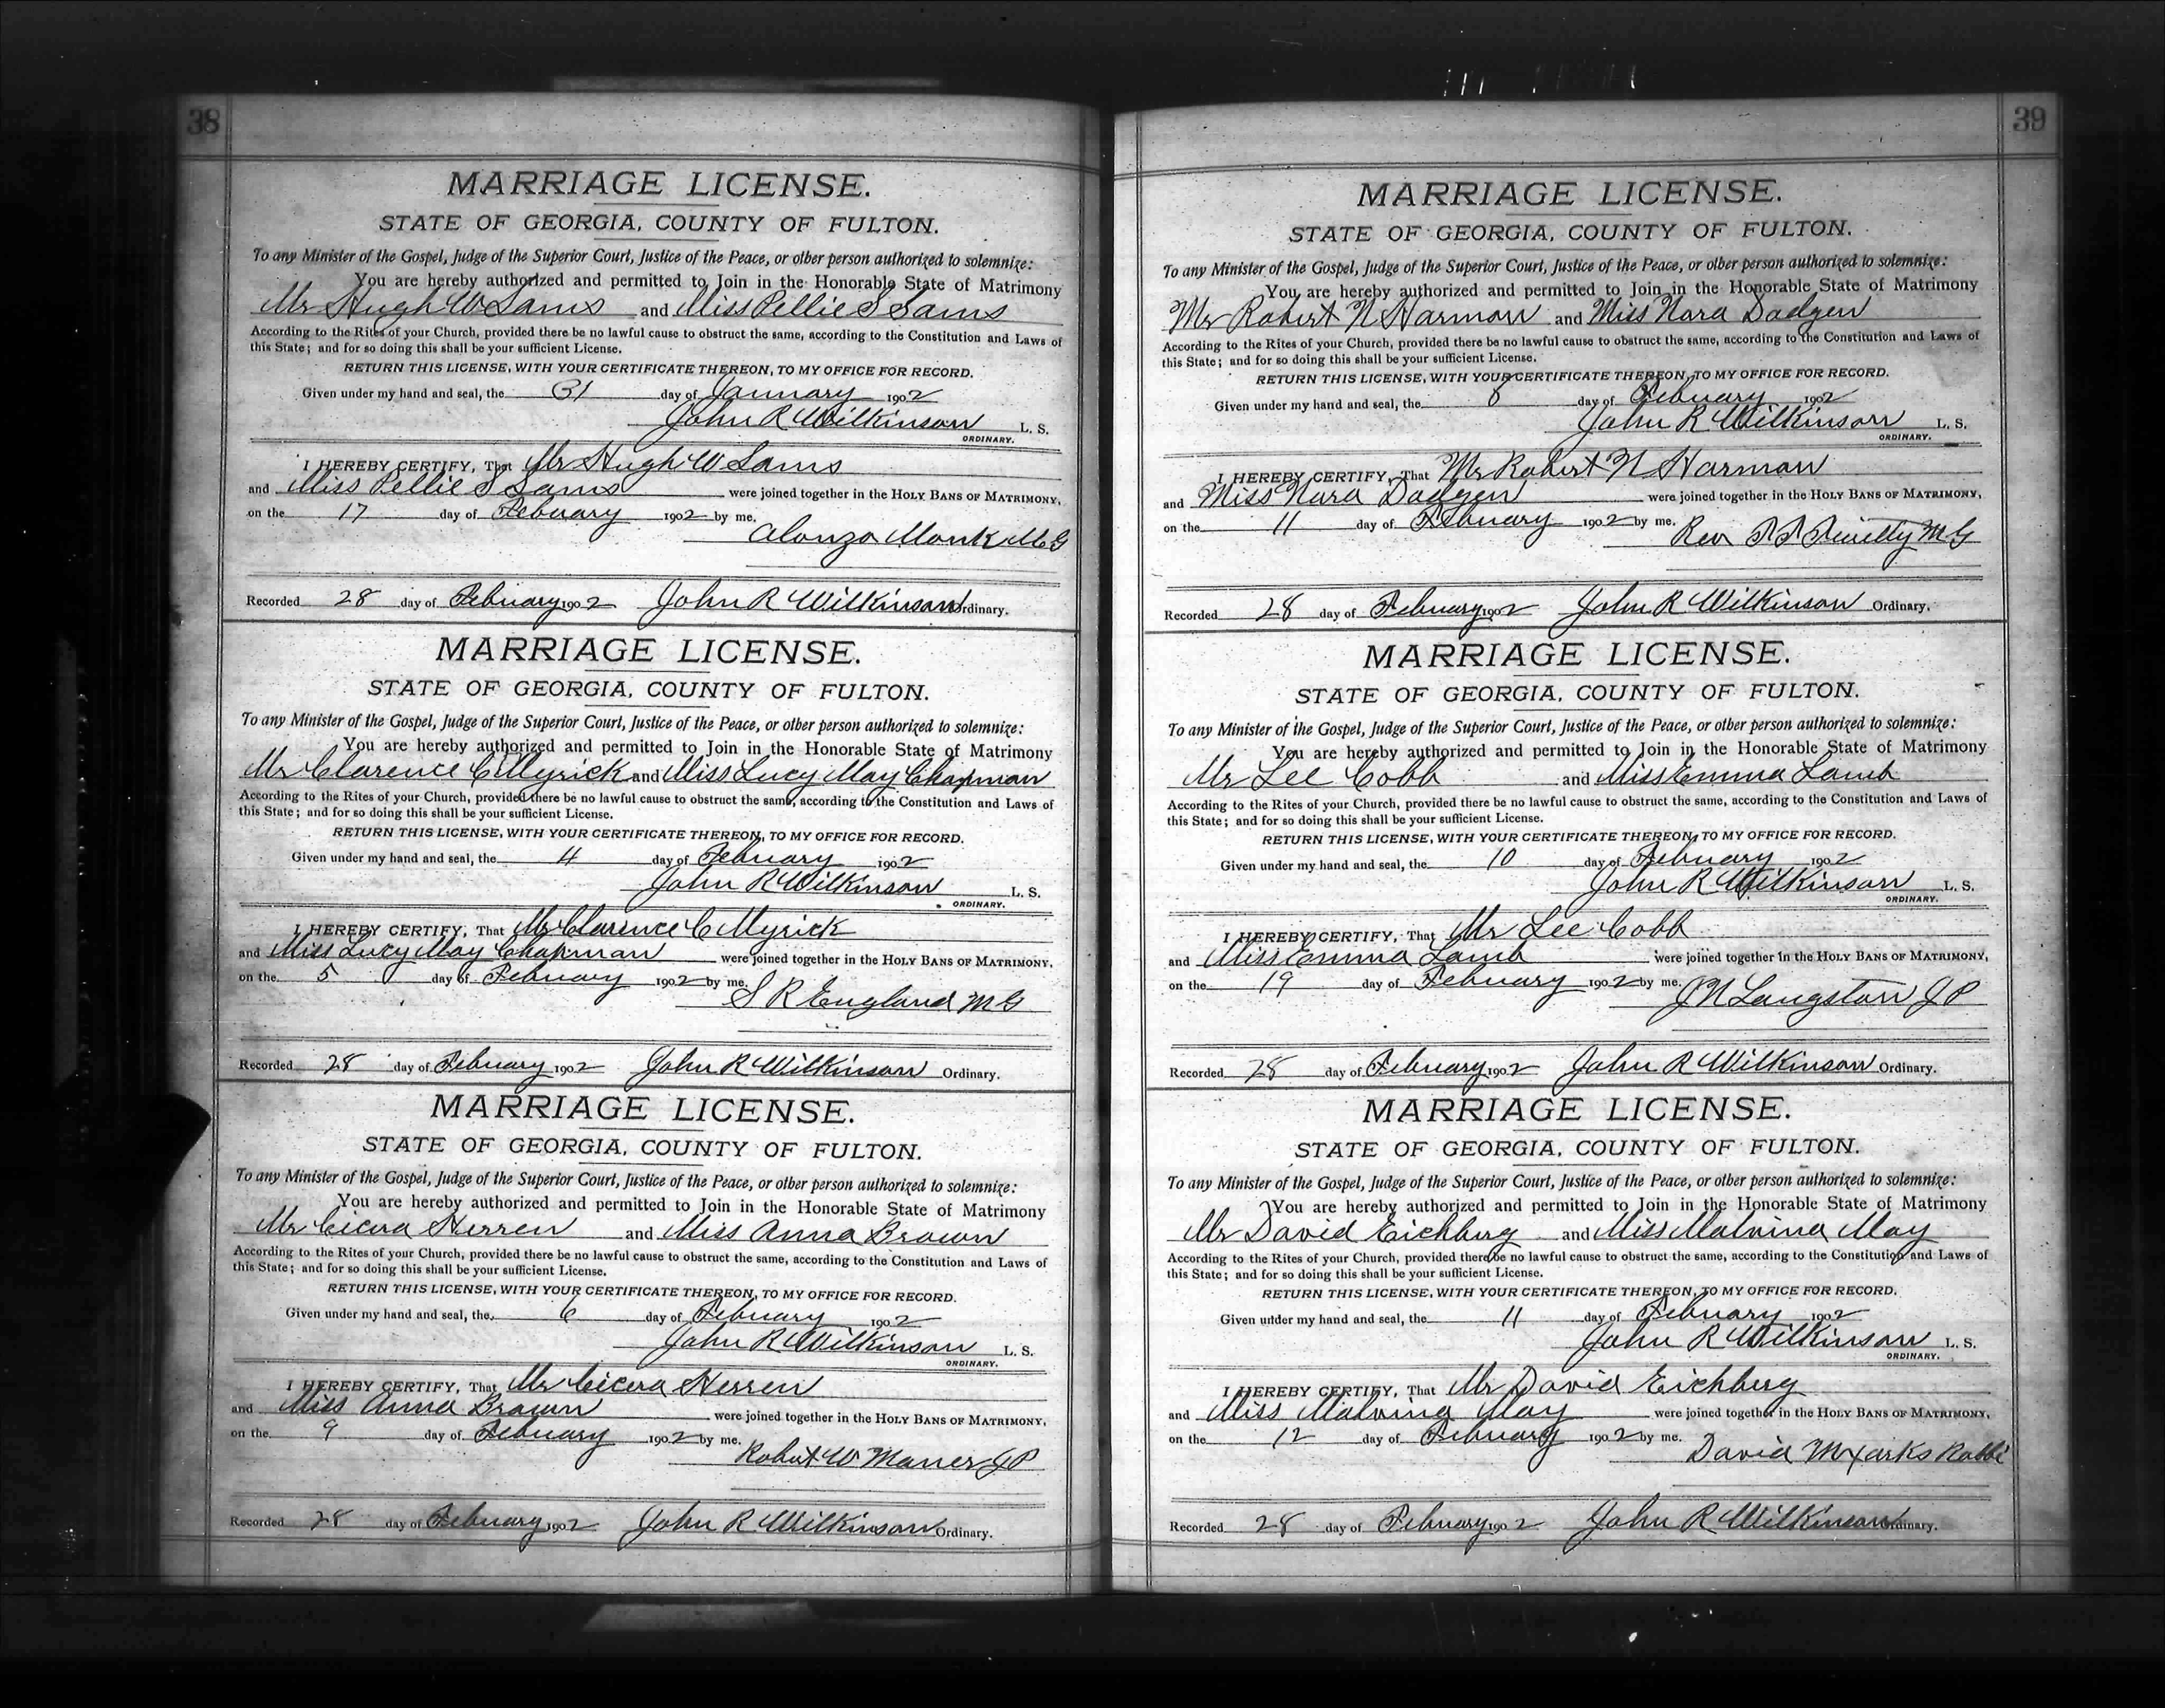 38
MARRIAGE LICENSE.
STATE OF GEORGIA, COUNTY OF FULTON.
To any Minister of the Gospel, Judge of the Superior Court, Justice of the Peace, or other person authorized to solemnize:
You are hereby authorized and permitted to Join in the Honorable State of Matrimony
Mr Hugh W Sams and Miss Pellie S Sams
According to the Rites of your Church, provided there be no lawful cause to obstruct the same, according to the Constitution and Laws of
this State; and for so doing this shall be your sufficient License.
RETURN THIS LICENSE, WITH YOUR CERTIFICATE THEREON, TO MY OFFICE FOR RECORD.
Given under my hand and seal, the 31 day of January 1902
John R Wilkinson L. S.
ORDINARY.
I HEREBY CERTIFY, That Mr Hugh W Sams
and Miss Pellie S Sams were joined together in the HOLY BANS OF MATRIMONY,
on the 17 day of February 1902 by me.
Alonzo Monk MG
Recorded 28 day of February 1902 John R Wilkinson Ordinary.
MARRIAGE LICENSE.
STATE OF GEORGIA, COUNTY OF FULTON.
To any Minister of the Gospel, Judge of the Superior Court, Justice of the Peace, or other person authorized to solemnize:
You are hereby authorized and permitted to Join in the Honorable State of Matrimony
Mr Clarence C Myrick and Miss Lucy May Chapman
According to the Rites of your Church, provided there be no lawful cause to obstruct the same, according to the Constitution and Laws of
this State; and for so doing this shall be your sufficient License.
RETURN THIS LICENSE, WITH YOUR CERTIFICATE THEREON, TO MY OFFICE FOR RECORD.
Given under my hand and seal, the 4 day of February 1902
John R Wilkinson L. S.
ORDINARY.
I HEREBY CERTIFY, That Mr Clarence C Myrick
and Miss Lucy May Chapman were joined together in the HOLY BANS OF MATRIMONY,
on the 5 day of February 1902 by me.
S R England MG
Recorded 28 day of February 1902 John R Wilkinson Ordinary.
MARRIAGE LICENSE.
STATE OF GEORGIA, COUNTY OF FULTON.
To any Minister of the Gospel, Judge of the Superior Court, Justice of the Peace, or other person authorized to solemnize:
You are hereby authorized and permitted to Join in the Honorable State of Matrimony
Mr Cicero Herren and Miss Anna Brown
According to the Rites of your Church, provided there be no lawful cause to obstruct the same, according to the Constitution and Laws of
this State; and for so doing this shall be your sufficient License.
RETURN THIS LICENSE, WITH YOUR CERTIFICATE THEREON, TO MY OFFICE FOR RECORD.
Given under my hand and seal, the 6 day of February 1902
John R Wilkinson L. S.
ORDINARY.
I HEREBY CERTIFY, That Mr Cicero Herren
and Miss Anna Brown were joined together in the HOLY BANS OF MATRIMONY,
on the 9 day of February 1902 by me.
Robert W Maner JP
Recorded 28 day of February 1902 John R Wilkinson Ordinary.
39
MARRIAGE LICENSE.
STATE OF GEORGIA, COUNTY OF FULTON.
To any Minister of the Gospel, Judge of the Superior Court, Justice of the Peace, or other person authorized to solemnize:
You are hereby authorized and permitted to Join in the Honorable State of Matrimony
Mr Robert N Harmon and Miss Nora Dodgen
According to the Rites of your Church, provided there be no lawful cause to obstruct the same, according to the Constitution and Laws of
this State; and for so doing this shall be your sufficient License.
RETURN THIS LICENSE, WITH YOUR CERTIFICATE THEREON, TO MY OFFICE FOR RECORD.
Given under my hand and seal, the 8 day of February 1902
John R Wilkinson L. S.
ORDINARY.
I HEREBY CERTIFY, That Mr Robert N Harmon
and Miss Nora Dodgen were joined together in the HOLY BANS OF MATRIMONY,
on the 11 day of February 1902 by me.
Rev MG
Recorded 28 day of February 1902 John R Wilkinson Ordinary.
MARRIAGE LICENSE.
STATE OF GEORGIA, COUNTY OF FULTON.
To any Minister of the Gospel, Judge of the Superior Court, Justice of the Peace, or other person authorized to solemnize:
You are hereby authorized and permitted to Join in the Honorable State of Matrimony
Mr Lee Cobb and Miss Emma Lamb
According to the Rites of your Church, provided there be no lawful cause to obstruct the same, according to the Constitution and Laws of
this State; and for so doing this shall be your sufficient License.
RETURN THIS LICENSE, WITH YOUR CERTIFICATE THEREON, TO MY OFFICE FOR RECORD.
Given under my hand and seal, the 10 day of February 1902
John R Wilkinson L. S.
ORDINARY.
I HEREBY CERTIFY, That Mr Lee Cobb
and Miss Emma Lamb were joined together in the HOLY BANS OF MATRIMONY,
on the 19 day of February 1902 by me.
J N Langston JP
Recorded 28 day of February 1902 John R Wilkinson Ordinary.
MARRIAGE LICENSE.
STATE OF GEORGIA, COUNTY OF FULTON.
To any Minister of the Gospel, Judge of the Superior Court, Justice of the Peace, or other person authorized to solemnize:
You are hereby authorized and permitted to Join in the Honorable State of Matrimony
Mr David Eichberg and Miss Malvina May
According to the Rites of your Church, provided there be no lawful cause to obstruct the same, according to the Constitution and Laws of
this State; and for so doing this shall be your sufficient License.
RETURN THIS LICENSE, WITH YOUR CERTIFICATE THEREON, TO MY OFFICE FOR RECORD.
Given under my hand and seal, the 11 day of February 1902
John R Wilkinson L. S.
ORDINARY.
I HEREBY CERTIFY, That Mr David Eichberg
and Miss Malvina May were joined together in the HOLY BANS OF MATRIMONY,
on the 12 day of February 1902 by me.
David Marks Rabbi
Recorded 28 day of February 1902 John R Wilkinson Ordinary.